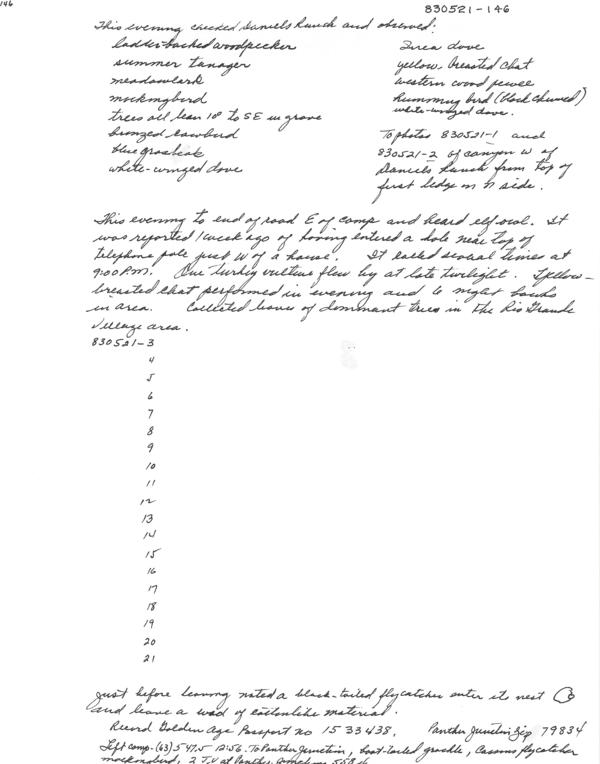 146
830521-146
This evening checked Daniels Ranch and observed:
ladder-backed woodpecker
summer tanager
meadowlark
mockingbird
trees all lean 10° to SE in grove
bronzed cowbird
blue grosbeak
white-winged dove
Inca dove
yellow-breasted chat
western wood pewee
Hummingbird (black chinned)
white-winged dove.
To photos 830521-1 and
830521-2 of canyon W of
Daniels Ranch from top of
first ledge on N side.
This evening to end of road E of camp and heard elf owl. It
was reported 1 week ago of having entered a hole near top of
telephone pole just W of a house. It called several times at
9:00 P.M. One turkey vulture flew by at late twilight. 1 yellow-
breasted chat performed in evening and 6 night hawks
in area. Collected leaves of dominant trees in The Rio Grande
Village area.
830521-3
4
5
6
7
8
9
10
11
12
13
14
15
16
17
18
19
20
21
Just before leaving noted a black-tailed flycatcher enter its nest
and leave a wad of cottonlike material.
Record Golden Age Passport no 1533438, Panther Junction Zip 79834
Left camp (63) 547.5 12:56. To Panther Junction, boat-tailed grackle, Cassins flycatcher
mockingbird, 2 T.V at Panther 558